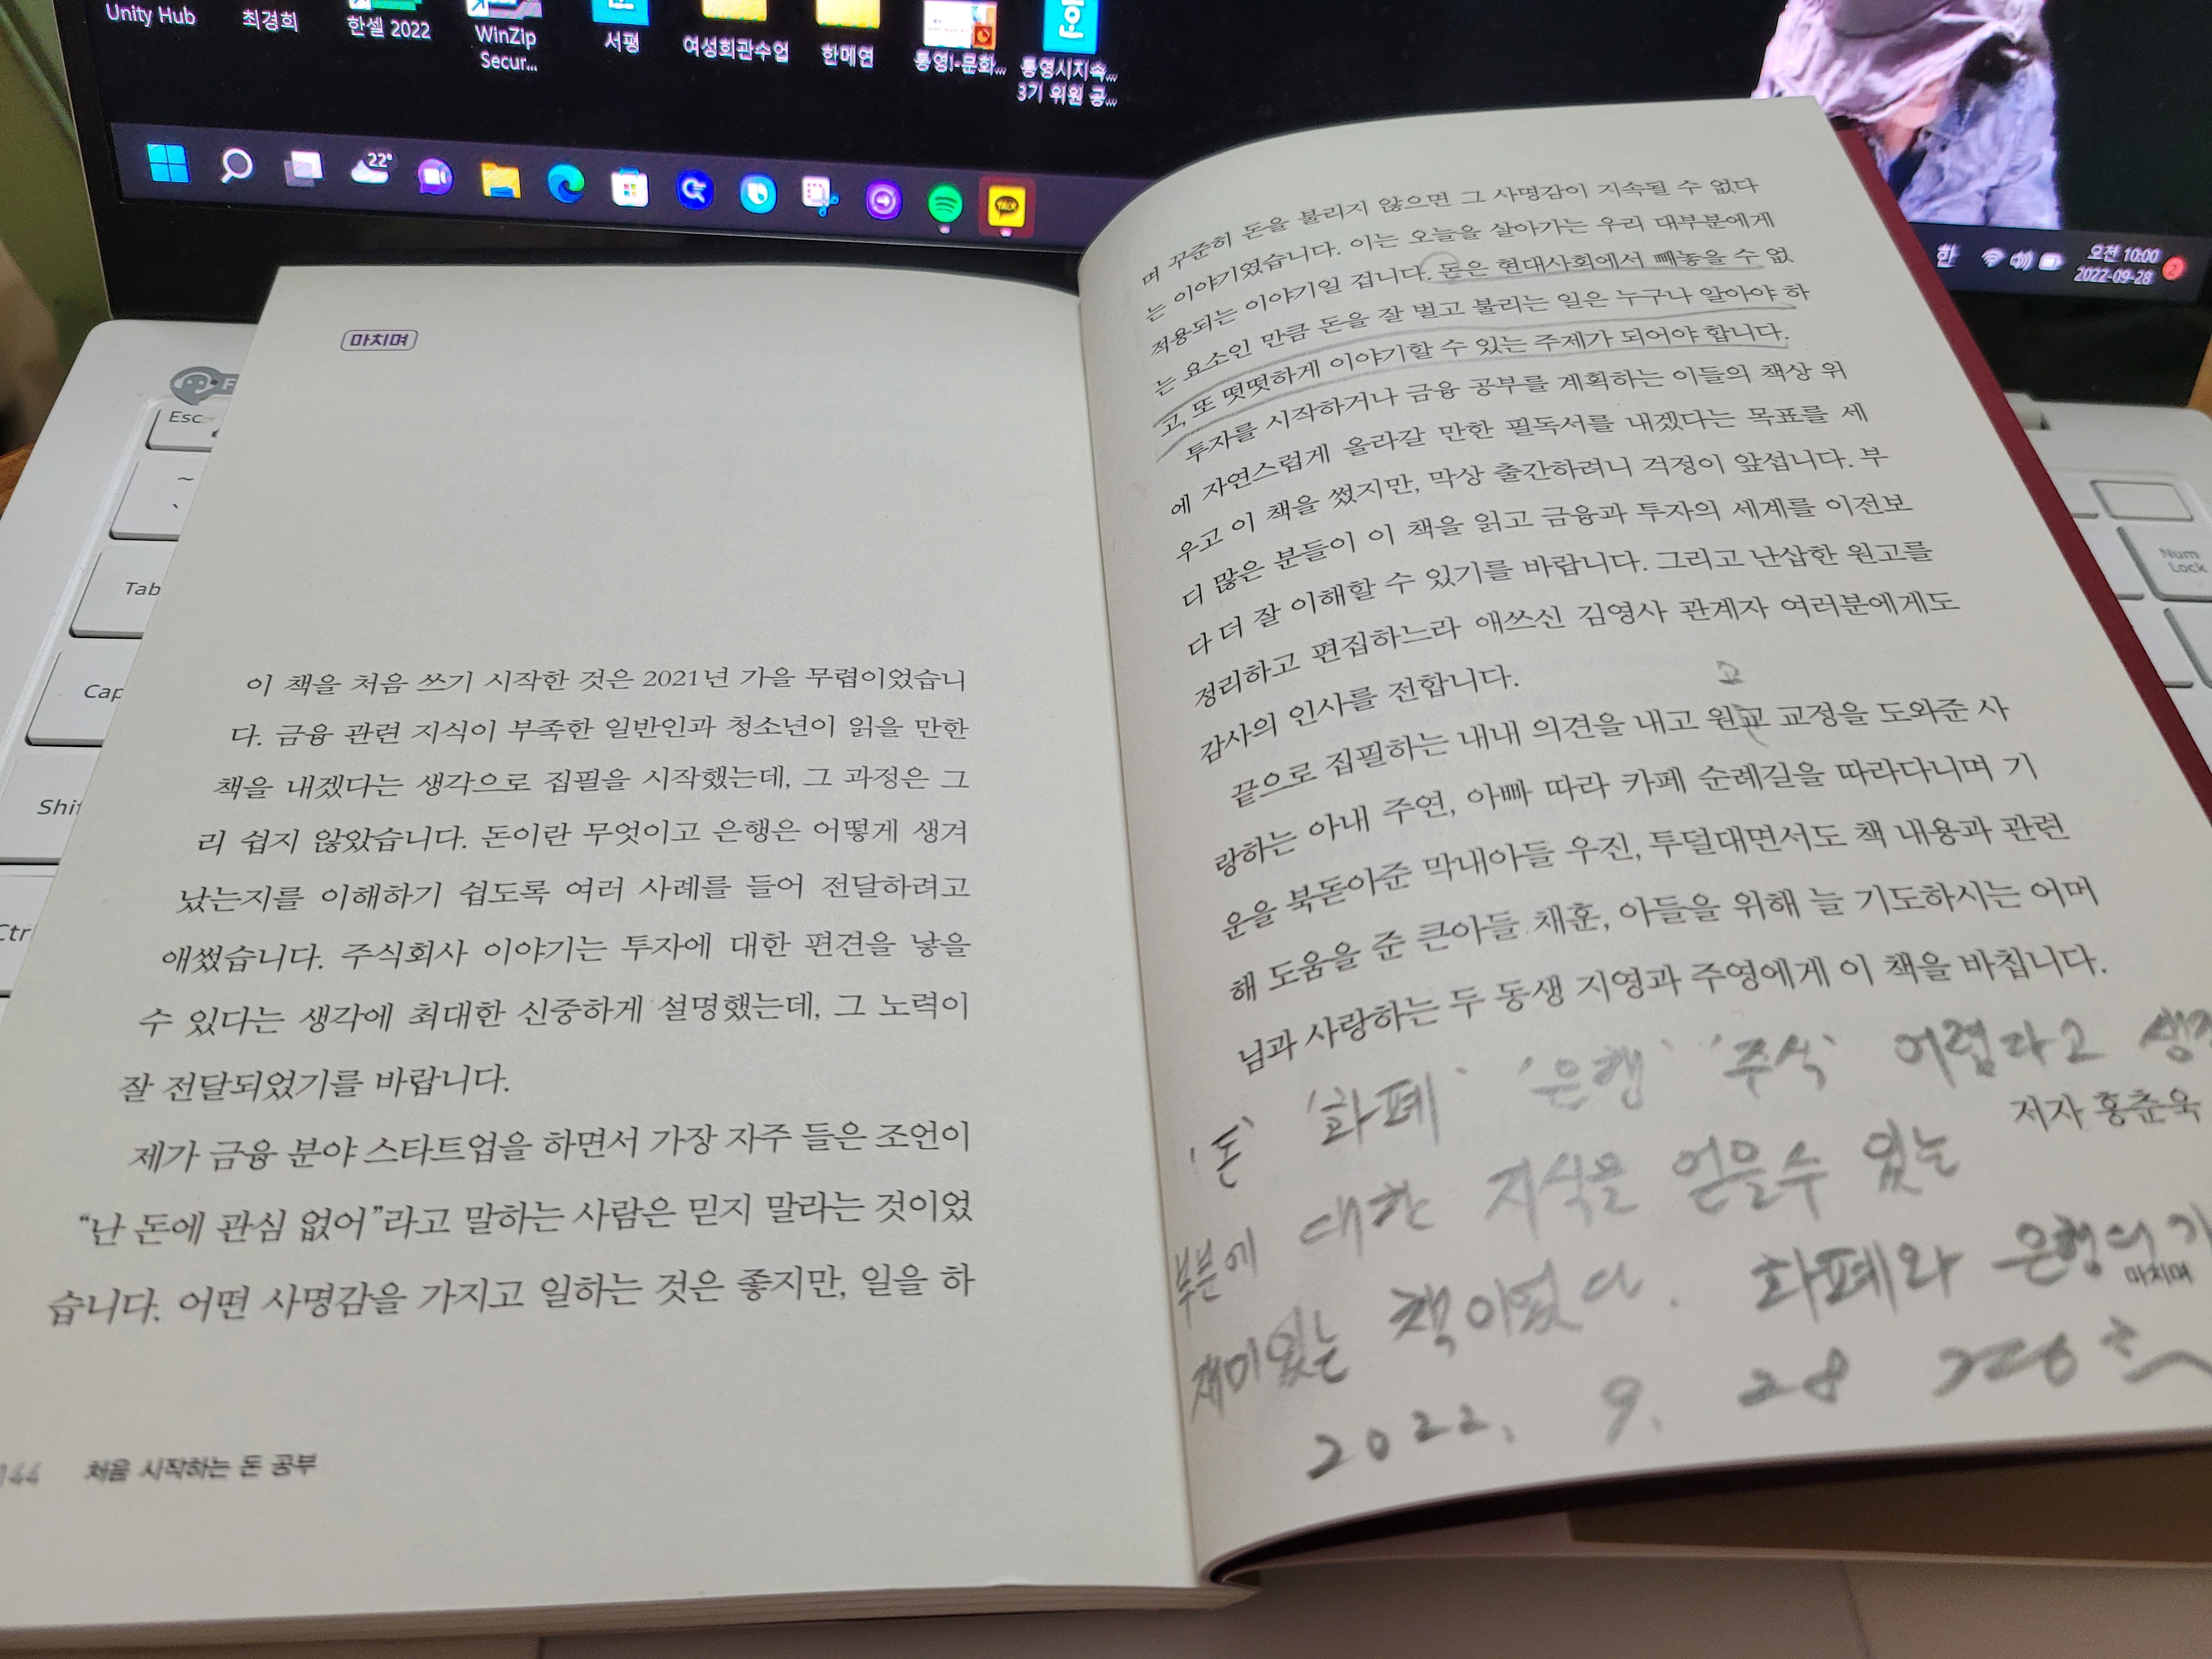 Unity Hub
최경희
한셀 2022
WinZip
Secur...
서평
여성회관수업
한메연
통영i-문화...
통영시지속...
3기 위원 공...
22°
TALK
한
오전 10:00
2022-09-28
2
Esc
~
Tab
Cap
Shif
Ctr
Num
Lock
마치며
이 책을 처음 쓰기 시작한 것은 2021년 가을 무렵이었습니
다. 금융 관련 지식이 부족한 일반인과 청소년이 읽을 만한
책을 내겠다는 생각으로 집필을 시작했는데, 그 과정은 그
리 쉽지 않았습니다. 돈이란 무엇이고 은행은 어떻게 생겨
났는지를 이해하기 쉽도록 여러 사례를 들어 전달하려고
애썼습니다. 주식회사 이야기는 투자에 대한 편견을 낳을
수 있다는 생각에 최대한 신중하게 설명했는데, 그 노력이
잘 전달되었기를 바랍니다.
제가 금융 분야 스타트업을 하면서 가장 자주 들은 조언이
“난 돈에 관심 없어”라고 말하는 사람은 믿지 말라는 것이었
습니다. 어떤 사명감을 가지고 일하는 것은 좋지만, 일을 하
144 처음 시작하는 돈 공부
며 꾸준히 돈을 불리지 않으면 그 사명감이 지속될 수 없다
는 이야기였습니다. 이는 오늘을 살아가는 우리 대부분에게
적용되는 이야기일 겁니다. 돈은 현대사회에서 빼놓을 수 없
는 요소인 만큼 돈을 잘 벌고 불리는 일은 누구나 알아야 하
고, 또 떳떳하게 이야기할 수 있는 주제가 되어야 합니다.
투자를 시작하거나 금융 공부를 계획하는 이들의 책상 위
에 자연스럽게 올라갈 만한 필독서를 내겠다는 목표를 세
우고 이 책을 썼지만, 막상 출간하려니 걱정이 앞섭니다. 부
디 많은 분들이 이 책을 읽고 금융과 투자의 세계를 이전보
다 더 잘 이해할 수 있기를 바랍니다. 그리고 난삽한 원고를
정리하고 편집하느라 애쓰신 김영사 관계자 여러분에게도
감사의 인사를 전합니다.
고
끝으로 집필하는 내내 의견을 내고 원교 교정을 도와준 사
랑하는 아내 주연, 아빠 따라 카페 순례길을 따라다니며 기
운을 북돋아준 막내아들 우진, 투덜대면서도 책 내용과 관련
해 도움을 준 큰아들 채훈, 아들을 위해 늘 기도하시는 어머
님과 사랑하는 두 동생 지영과 주영에게 이 책을 바칩니다.
'돈' '화폐' '은행' '주식' 어렵다고 생
저자 홍춘욱
부분에 대한 지식을 얻을수 있는
재미있는 책이었다. 화폐와 은행의
마치며
2022. 9. 28